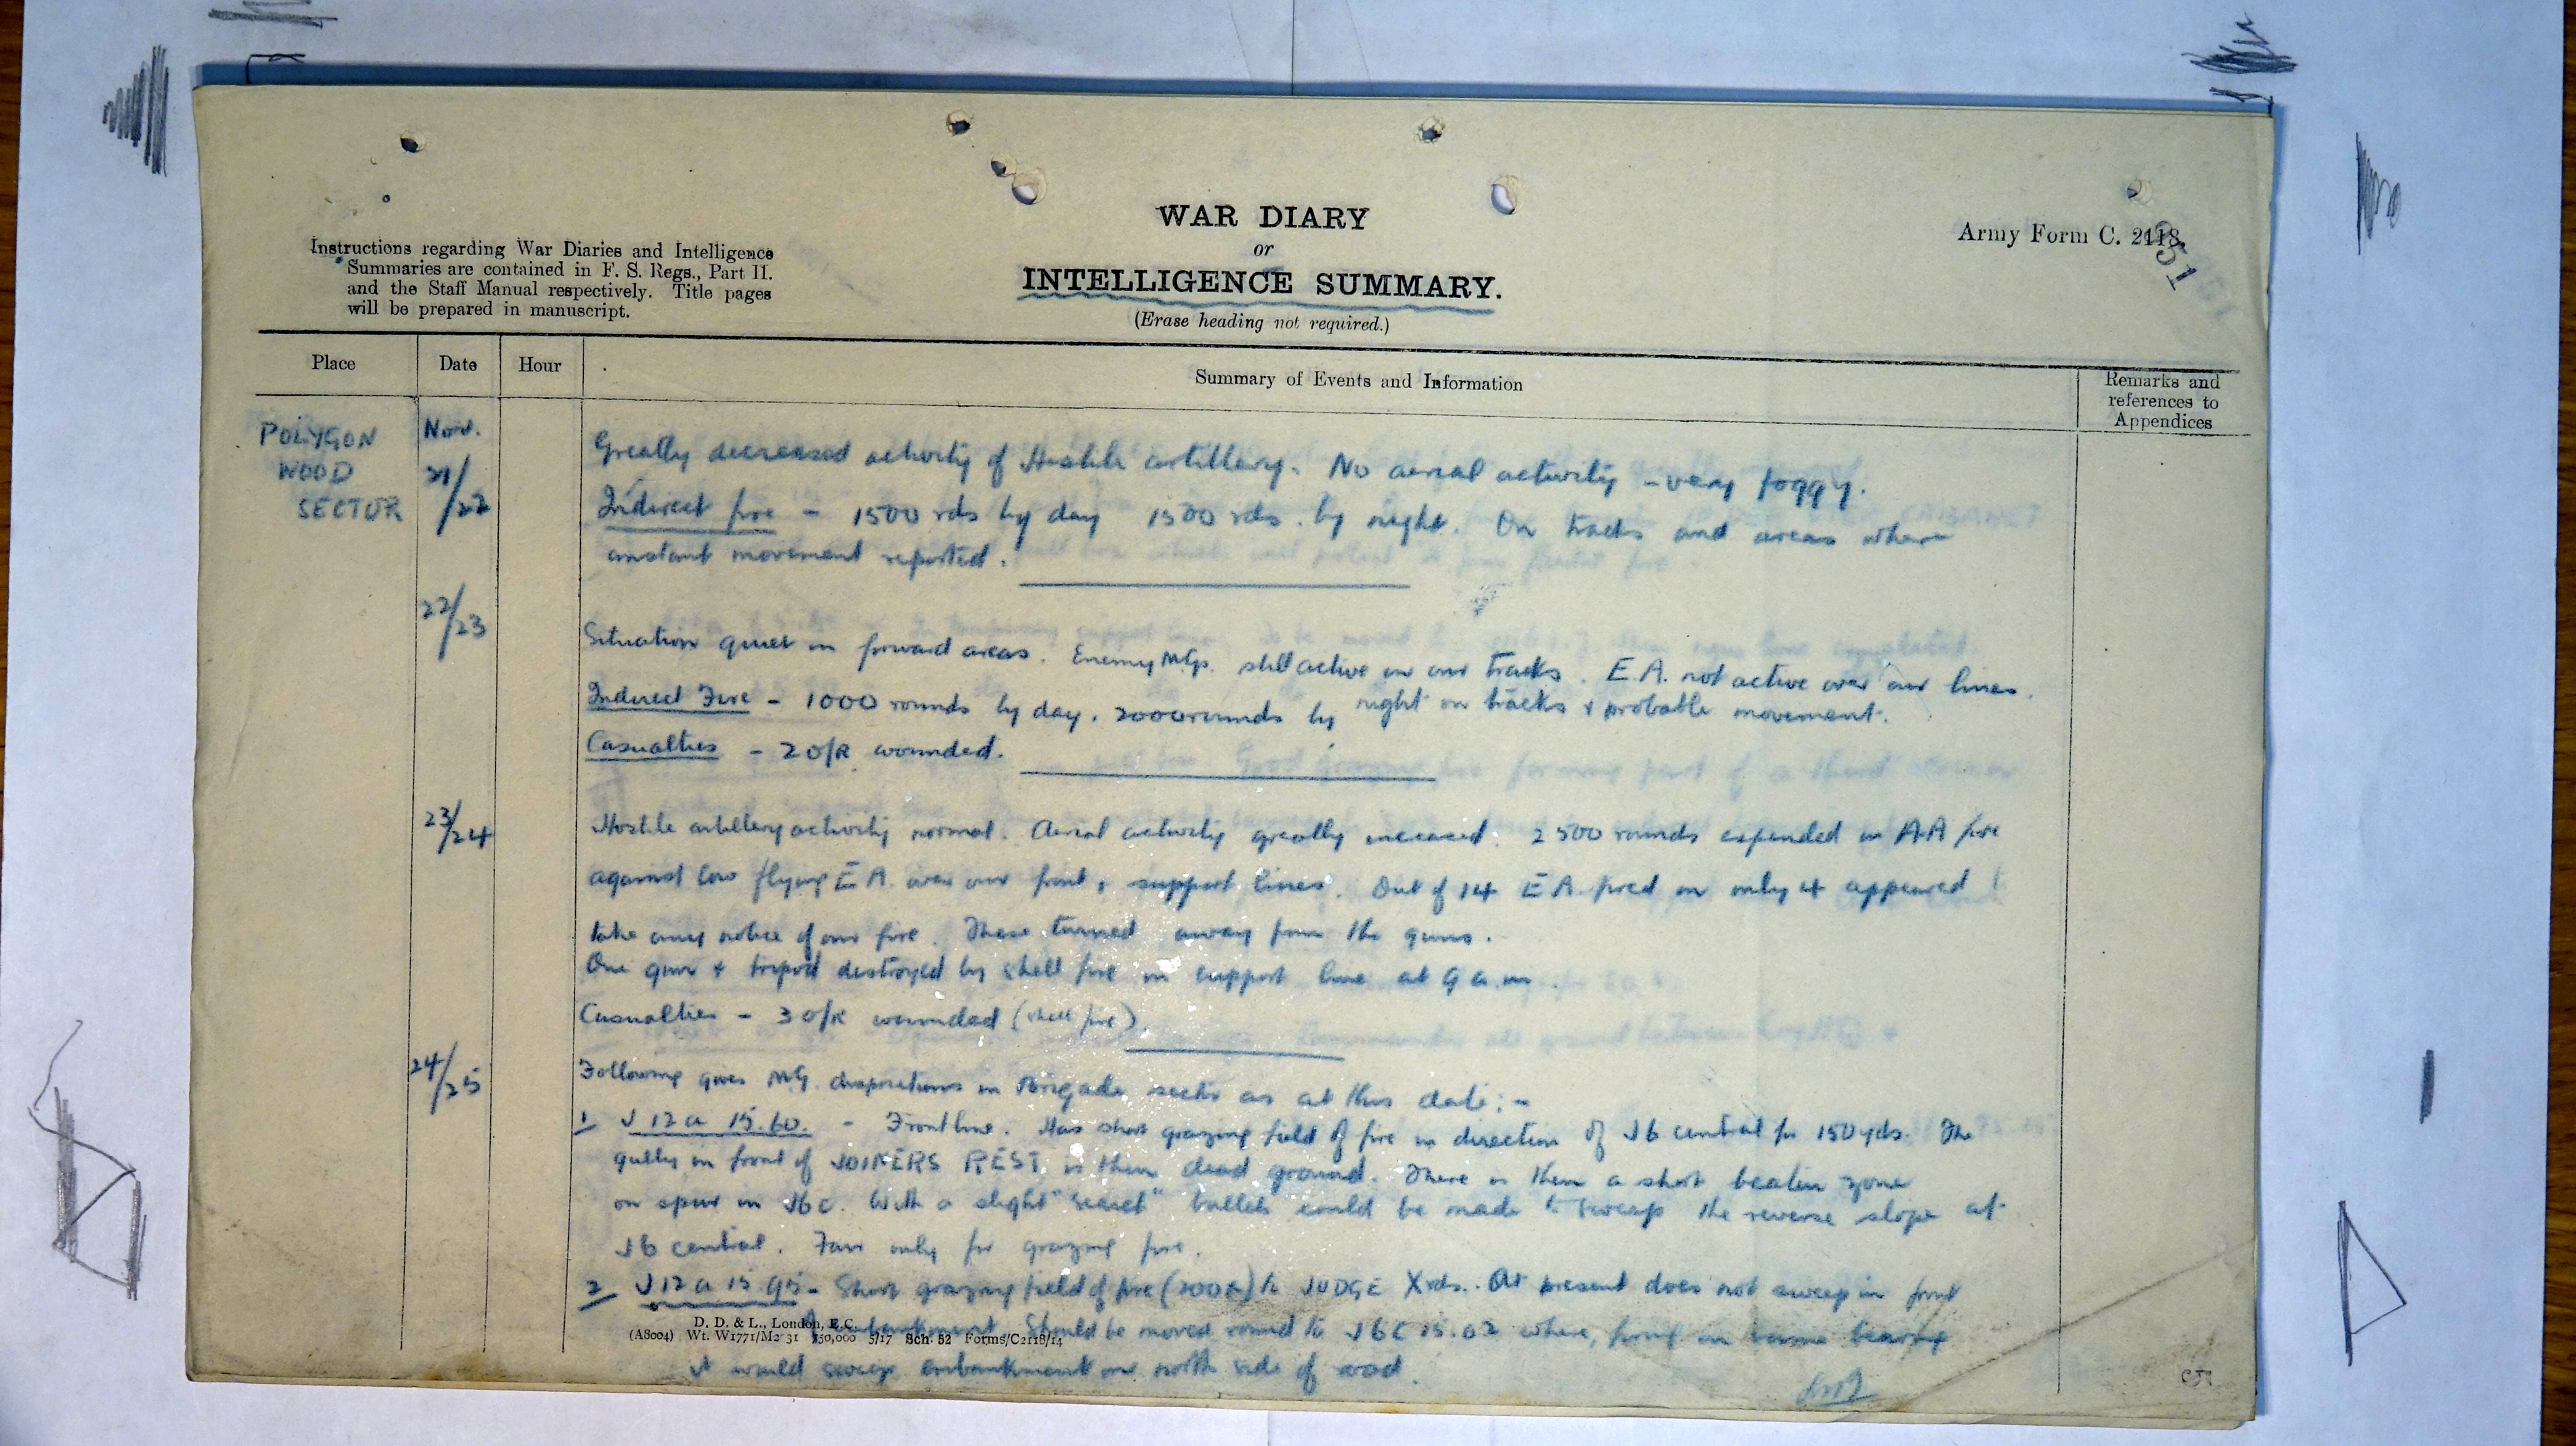 WAR DIARY
or
INTELLIGENCE SUMMARY.
(Erase heading not required.)
Instructions regarding War Diaries and Intelligence
Summaries are contained in F. S. Regs., Part II.
and the Staff Manual respectively. Title pages
will be prepared in manuscript.
Army Form C. 2118.
51
Place
Date
Hour
Summary of Events and Information
Remarks and
references to
Appendices
POLYGON
WOOD
SECTOR
Nov.
21/22
Greatly decreased activity of Hostile artillery. No aerial activity - very foggy.
Indirect fire - 1500 rds by day 1500 rds. by night. On tracks and areas where
constant movement reported.
22/23
Situation quiet in forward areas. Enemy M.Gs. still active on our tracks. E.A. not active over our lines.
Indirect Fire - 1000 rounds by day. 2000 rounds by night on tracks & probable movement.
Casualties - 2 O/R wounded.
23/24
Hostile artillery activity normal. Aerial activity greatly increased. 2500 rounds expended in A.A fire
against low flying E.A. over our front & support lines. Out of 14 E.A. fired on only 4 appeared
take any notice of our fire. These turned away from the guns.
One gun & tripod destroyed by shell fire in support line at 9 a.m.
Casualties - 3 O/R wounded (shell fire).
24/25
Following gives M.G. dispositions in Brigade sector as at this date:-
1 J 12 a 15.60. - Front line. Has short grazing field of fire in direction of J6 central for 150 yds. The
gully in front of JOINERS REST is then dead ground. There is then a short beaten zone
on spur in J6c. With a slight "search" bullets could be made to sweep the reverse slope at
J6 central. Fair only for grazing fire.
2 J 12 a 15.95 - Short grazing field of fire (200x) to JUDGE Xrds. At present does not sweep in front
embankment. Should be moved round to J6c 15.02 where, firing on same bearing
it would sweep embankment on north side of road.
D. D. & L., London, E.C.
(A8004) Wt. W1771/M2 31 750,000 5/17 Sch. 52 Forms/C2118/14